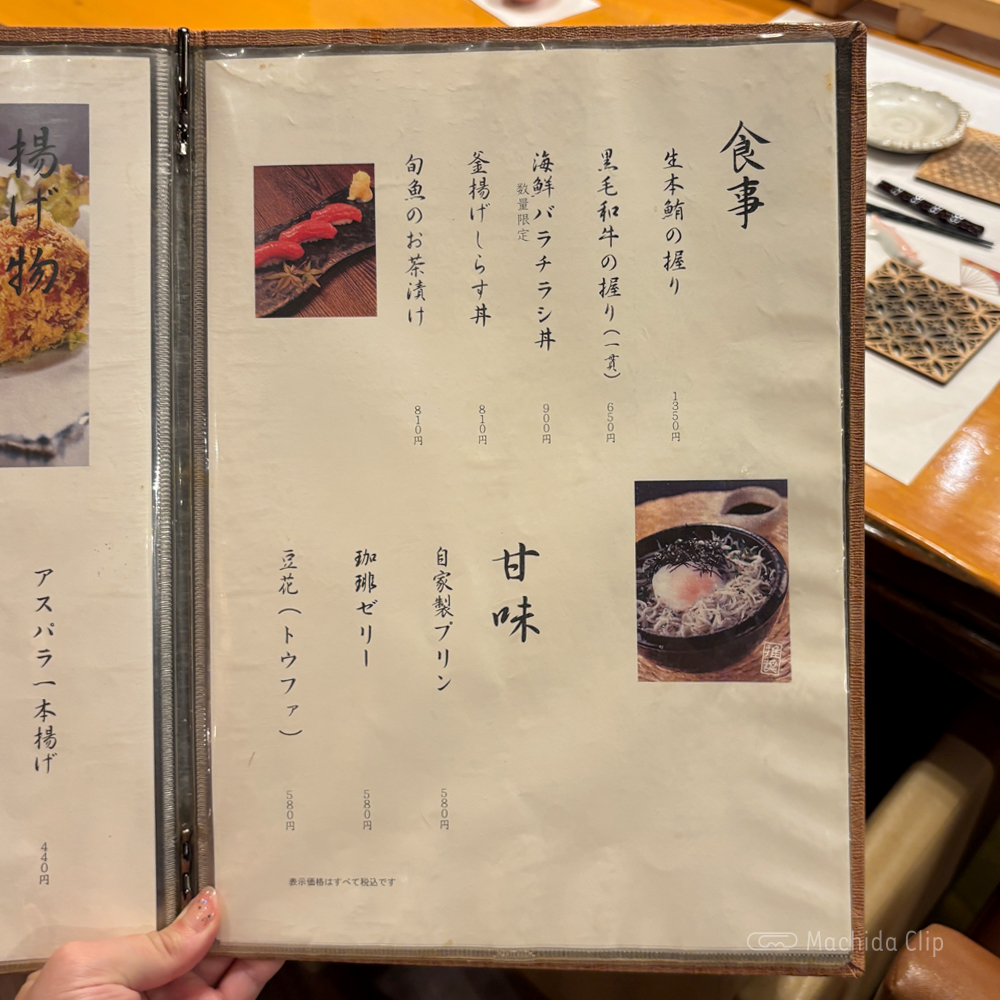 食事
生本鮪の握り
1350円
黒毛和牛の握り(一貫)
650円
海鮮バラチラシ丼
数量限定
900円
釜揚げしらす丼
810円
旬魚のお茶漬け
810円
推奨
甘味
自家製プリン
580円
珈琲ゼリー
580円
豆花(トウファ)
580円
表示価格はすべて税込です
揚げ物
アスパラ一本揚げ
440円
Machida Clip